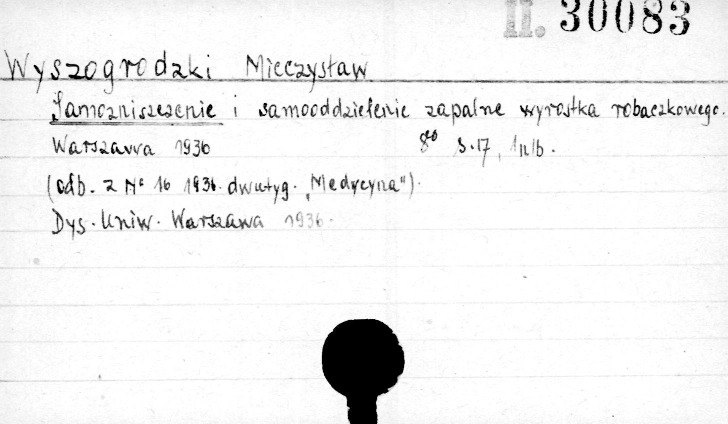 II. 30083
Wyszogrodzki Mieczysław
Samozniszczenie i samooddzielenie zapalne wyrostka robaczkowego.
Warszawa 1936 8° s. 17, 1nlb.
(odb. z Nº 16 1936. dwutyg. "Medycyna").
Dys. Uniw. Warszawa 1936.